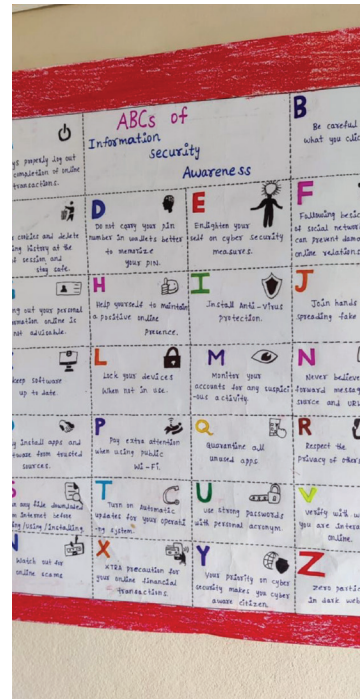 ABCs of
Information
security
Awareness
B
Be careful
what you clic
ys properly log out
completion of online
transactions.
cookies and delete
ing history at the
d session and
stay safe.
D
Do not carry your pin
number in wallets better
to memorize
your pin.
E
Enlighten your
self on cyber security
measures.
F
Following basic
of social network
can prevent dama
online relation
ing out your personal
rmation online is
not advisable.
H
Help yourself to maintain
a positive online
presence.
I
Install Anti-virus
Protection.
J
Join hands
spreading fake
keep software
up to date.
L
Lock your devices
When not in use.
M
Monitor your
accounts for any suspici-
ous activity.
N
Never believe
forward messag
source and URL
y install apps and
tware from trusted
sources.
P
Pay extra attention
when using public
Wi-Fi.
Q
Quarantine all
unused apps.
R
Respect the
privacy of other
S
n any file downloaded
om Internet before
ing/using/installing.
T
Turn on Automatic
updates for your operati
ng system.
U
use strong passwords
with personal acronym.
V
Verify with w
You are intera
online.
W
Watch out for
online scams
X
XTRA precaution for
your online financial
transactions.
Y
Your priority on cyber
security makes you cyber
aware citizen.
Z
Zero partic
in dark web